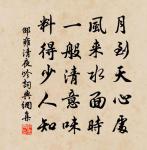 月到天心處
風來水面時
一般清意味
料得少人知
邵雍清夜吟詞典網集